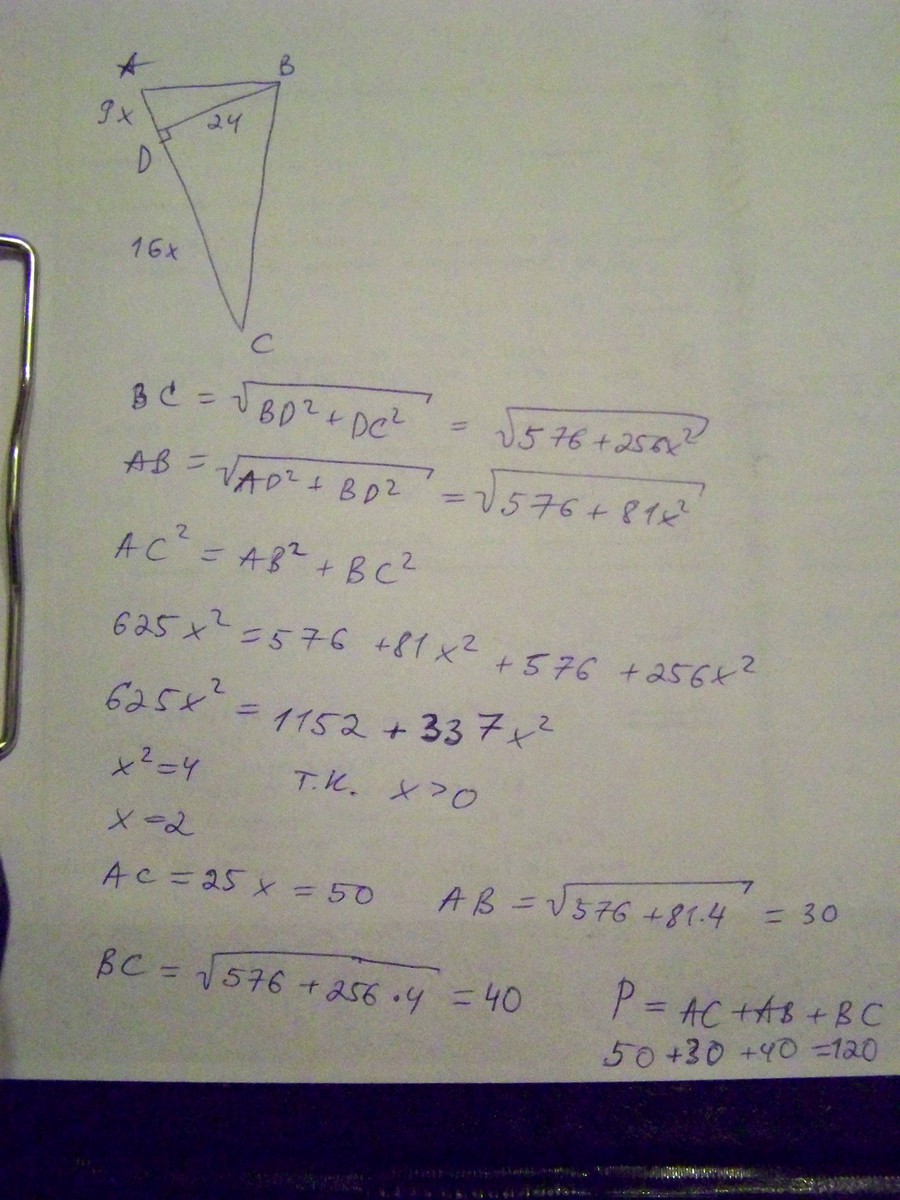 A
B
9x
24
D
16x
C
BC = √(BD² + DC²) = √(576 + 256x²)
AB = √(AD² + BD²) = √(576 + 81x²)
AC² = AB² + BC²
625x² = 576 + 81x² + 576 + 256x²
625x² = 1152 + 337x²
x² = 4 т.к. x > 0
x = 2
AC = 25x = 50 AB = √(576 + 81·4) = 30
BC = √(576 + 256·4) = 40
P = AC + AB + BC
50 + 30 + 40 = 120